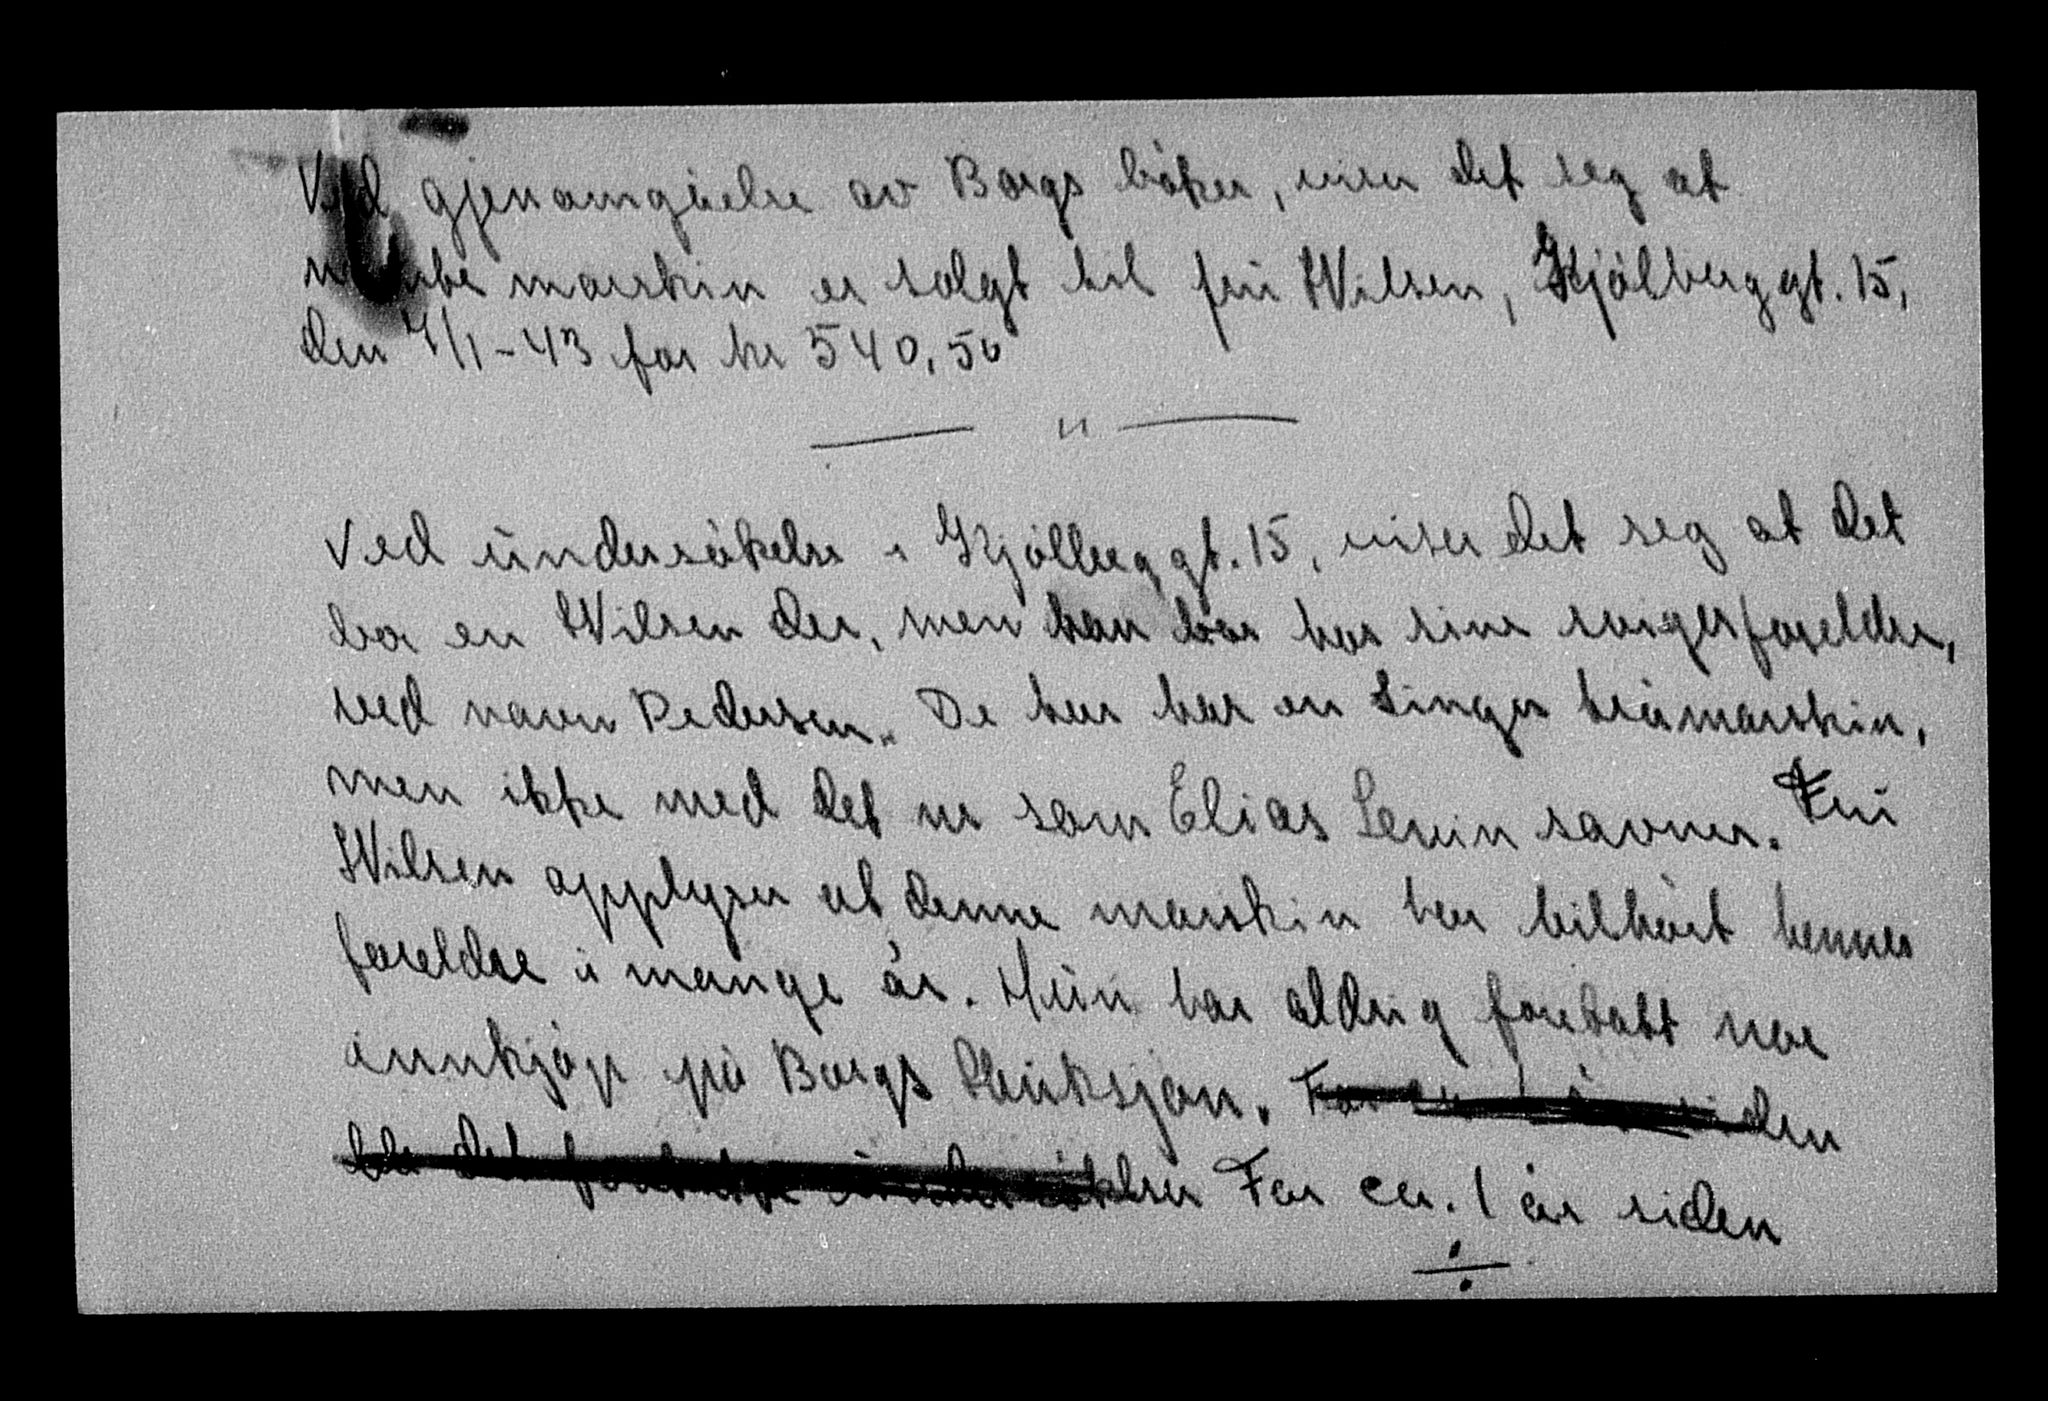 Ved gjenomgåelse av Borgs bøker, viser det seg at
maskin er solgt til frü Wilsen, Kjølberggt. 15,
den 7/1-43 for kr 540,50
— " —
Ved ündersøkelse i Kjølberggt. 15, viser det seg at det
bor en Wilsen der, men han bor hos sine svigerforeldre,
ved navn Pedersen. De har har en Singer tråmaskin,
men ikke med det nr som Elias Levin savner. Frü
Wilsen opplyser at denne maskin har tilhørt hennes
foreldre i mange år. Hün har aldrig foretatt noe
innkjøp på Borgs Aüksjon. For siden
ble det ündersøkelser For ca. 1 år siden
÷